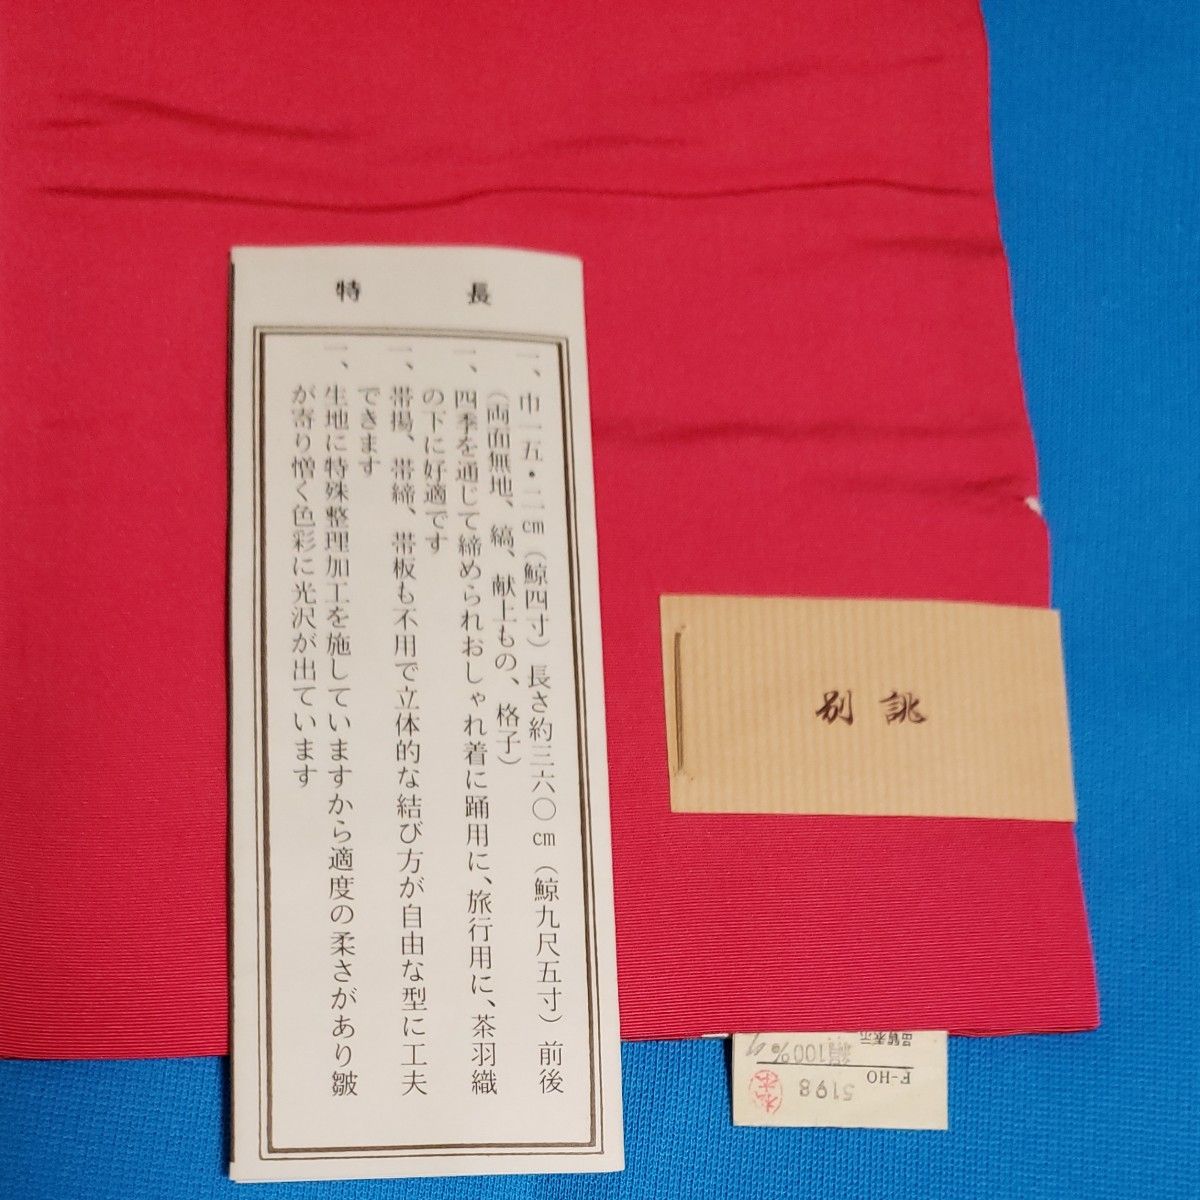 特長
一、巾一五・二cm（鯨四寸）長さ約三六〇cm（鯨九尺五寸）前後
（両面無地、縞、献上もの、格子）
一、四季を通じて締められおしゃれ着に踊用に、旅行用に、茶羽織
の下に好適です
一、帯揚、帯締、帯板も不用で立体的な結び方が自由な型に工夫
できます
一、生地に特殊整理加工を施していますから適度の柔さがあり皺
が寄り憎く色彩に光沢が出ています
別誂
品質表示
絹100%
F-HO
5198